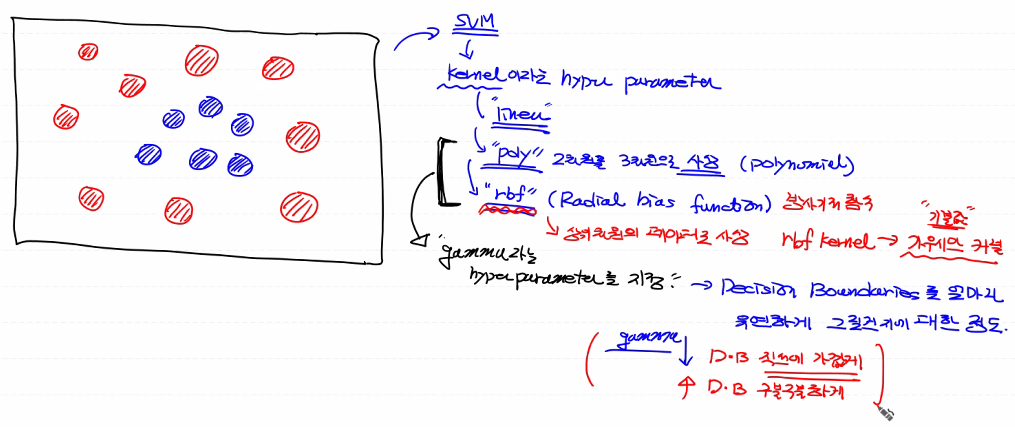 SVM
kernel이라는 hyper parameter
"linear"
"poly" 2차원을 3차원으로 사상 (polynomial)
"rbf" (Radial bias function) 방사기저함수
"기본값"
상위차원의 데이터로 사상 rbf kernel → 가우시안 커널
"gamma라는
hyperparameter를 지정" → Decision Boundaries를 얼마나
유연하게 그릴건지에 대한 정도.
gamma ↓ D.B 직선에 가깝게
↑ D.B 구불구불하게